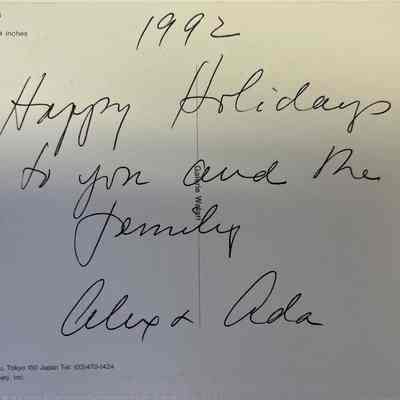 inches
1992
Happy Holidays
to you and the
family
Alex & Ada
Tokyo 150 Japan Tel: (03)470-1424
Inc.